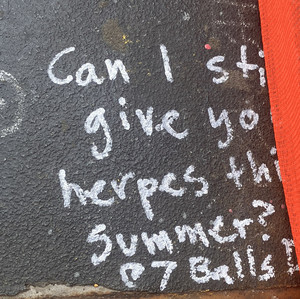 Can I sti
give yo
herpes thi
summer?
07 Balls